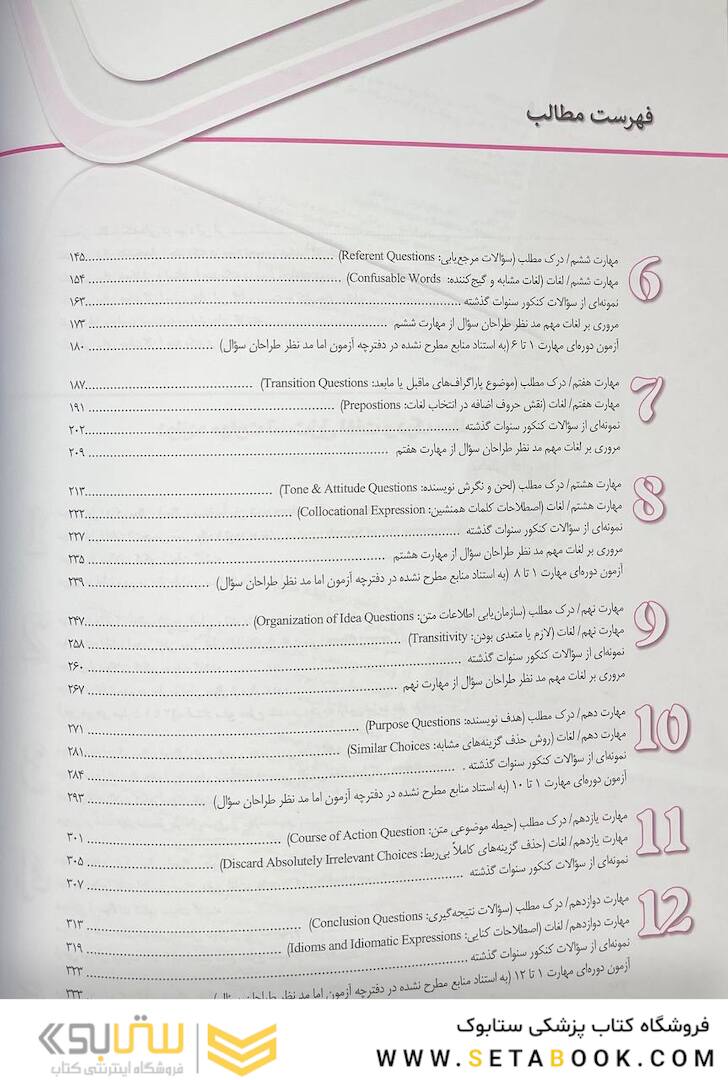 فهرست مطالب
6
مهارت ششم/ درک مطلب (سؤالات مرجع‌یابی: Referent Questions) ۱۴۵
مهارت ششم/ لغات (لغات مشابه و گیج‌کننده: Confusable Words) ۱۵۴
نمونه‌ای از سؤالات کنکور سنوات گذشته ۱۶۳
مروری بر لغات مهم مد نظر طراحان سؤال از مهارت ششم ۱۷۳
آزمون دوره‌ای مهارت ۱ تا ۶ (به استناد منابع مطرح نشده در دفترچه آزمون اما مد نظر طراحان سؤال) ۱۸۰
7
مهارت هفتم/ درک مطلب (موضوع پاراگراف‌های ماقبل یا مابعد: Transition Questions) ۱۸۷
مهارت هفتم/ لغات (نقش حروف اضافه در انتخاب لغات: Prepostions) ۱۹۱
نمونه‌ای از سؤالات کنکور سنوات گذشته ۲۰۲
مروری بر لغات مهم مد نظر طراحان سؤال از مهارت هفتم ۲۰۹
8
مهارت هشتم/ درک مطلب (لحن و نگرش نویسنده: Tone & Attitude Questions) ۲۱۳
مهارت هشتم/ لغات (اصطلاحات کلمات همنشین: Collocational Expression) ۲۲۲
نمونه‌ای از سؤالات کنکور سنوات گذشته ۲۲۷
مروری بر لغات مهم مد نظر طراحان سؤال از مهارت هشتم ۲۳۵
آزمون دوره‌ای مهارت ۱ تا ۸ (به استناد منابع مطرح نشده در دفترچه آزمون اما مد نظر طراحان سؤال) ۲۳۹
9
مهارت نهم/ درک مطلب (سازمان‌یابی اطلاعات متن: Organization of Idea Questions) ۲۴۷
مهارت نهم/ لغات (لازم یا متعدی بودن: Transitivity) ۲۵۸
نمونه‌ای از سؤالات کنکور سنوات گذشته ۲۶۰
مروری بر لغات مهم مد نظر طراحان سؤال از مهارت نهم ۲۶۷
10
مهارت دهم/ درک مطلب (هدف نویسنده: Purpose Questions) ۲۷۱
مهارت دهم/ لغات (روش حذف گزینه‌های مشابه: Similar Choices) ۲۸۱
نمونه‌ای از سؤالات کنکور سنوات گذشته ۲۸۴
آزمون دوره‌ای مهارت ۱ تا ۱۰ (به استناد منابع مطرح نشده در دفترچه آزمون اما مد نظر طراحان سؤال) ۲۹۳
11
مهارت یازدهم/ درک مطلب (حیطه موضوعی متن: Course of Action Question) ۳۰۱
مهارت یازدهم/ لغات (حذف گزینه‌های کاملاً بی‌ربط: Discard Absolutely Irrelevant Choices) ۳۰۵
نمونه‌ای از سؤالات کنکور سنوات گذشته ۳۰۷
12
مهارت دوازدهم/ درک مطلب (سؤالات نتیجه‌گیری: Conclusion Questions) ۳۱۳
مهارت دوازدهم/ لغات (اصطلاحات کنایی: Idioms and Idiomatic Expressions) ۳۱۹
نمونه‌ای از سؤالات کنکور سنوات گذشته ۳۲۳
آزمون دوره‌ای مهارت ۱ تا ۱۲ (به استناد منابع مطرح نشده در دفترچه آزمون اما مد نظر طراحان سؤال) ۳۳۳
فروشگاه کتاب پزشکی ستابوک
WWW.SETABOOK.COM
ستابوک
فروشگاه اینترنتی کتاب